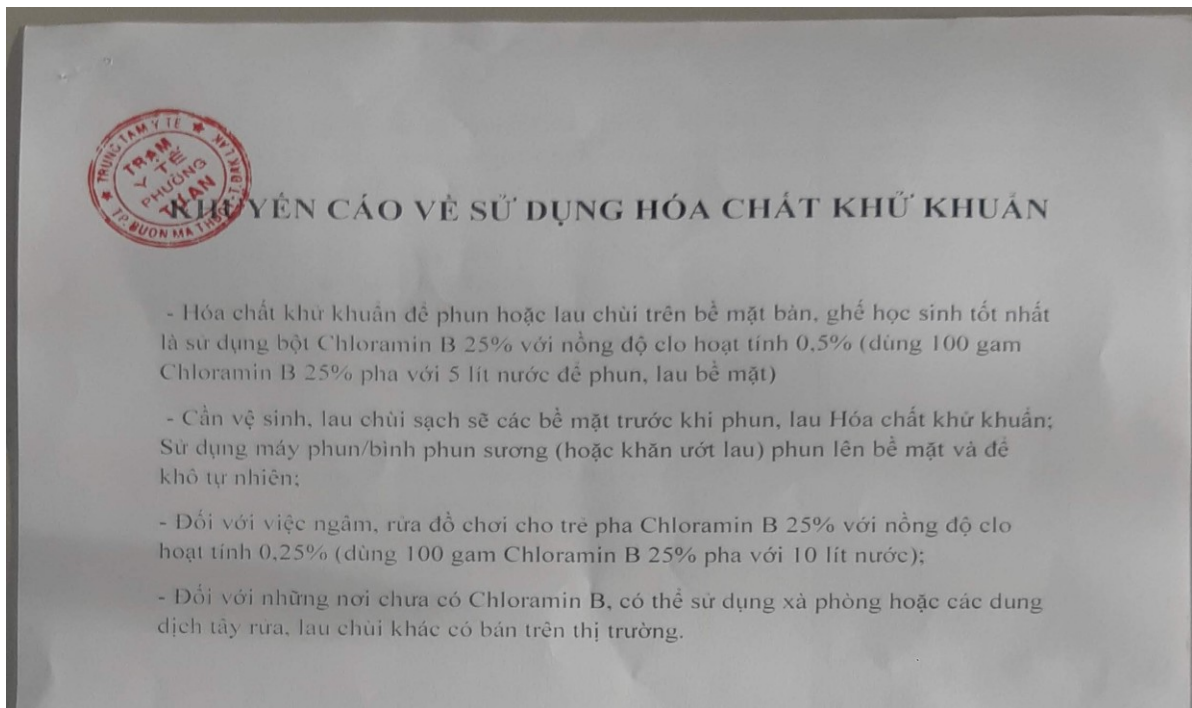 TRUNG TÂM Y TẾ
TP. BUÔN MA THUỘT - T. ĐẮK LẮK
TRẠM
Y TẾ
PHƯỜNG
KHUYẾN CÁO VỀ SỬ DỤNG HÓA CHẤT KHỬ KHUẨN
- Hóa chất khử khuẩn để phun hoặc lau chùi trên bề mặt bàn, ghế học sinh tốt nhất
là sử dụng bột Chloramin B 25% với nồng độ clo hoạt tính 0,5% (dùng 100 gam
Chloramin B 25% pha với 5 lít nước để phun, lau bề mặt)
- Cần vệ sinh, lau chùi sạch sẽ các bề mặt trước khi phun, lau Hóa chất khử khuẩn;
Sử dụng máy phun/bình phun sương (hoặc khăn ướt lau) phun lên bề mặt và để
khô tự nhiên;
- Đối với việc ngâm, rửa đồ chơi cho trẻ pha Chloramin B 25% với nồng độ clo
hoạt tính 0,25% (dùng 100 gam Chloramin B 25% pha với 10 lít nước);
- Đối với những nơi chưa có Chloramin B, có thể sử dụng xà phòng hoặc các dung
dịch tẩy rửa, lau chùi khác có bán trên thị trường.